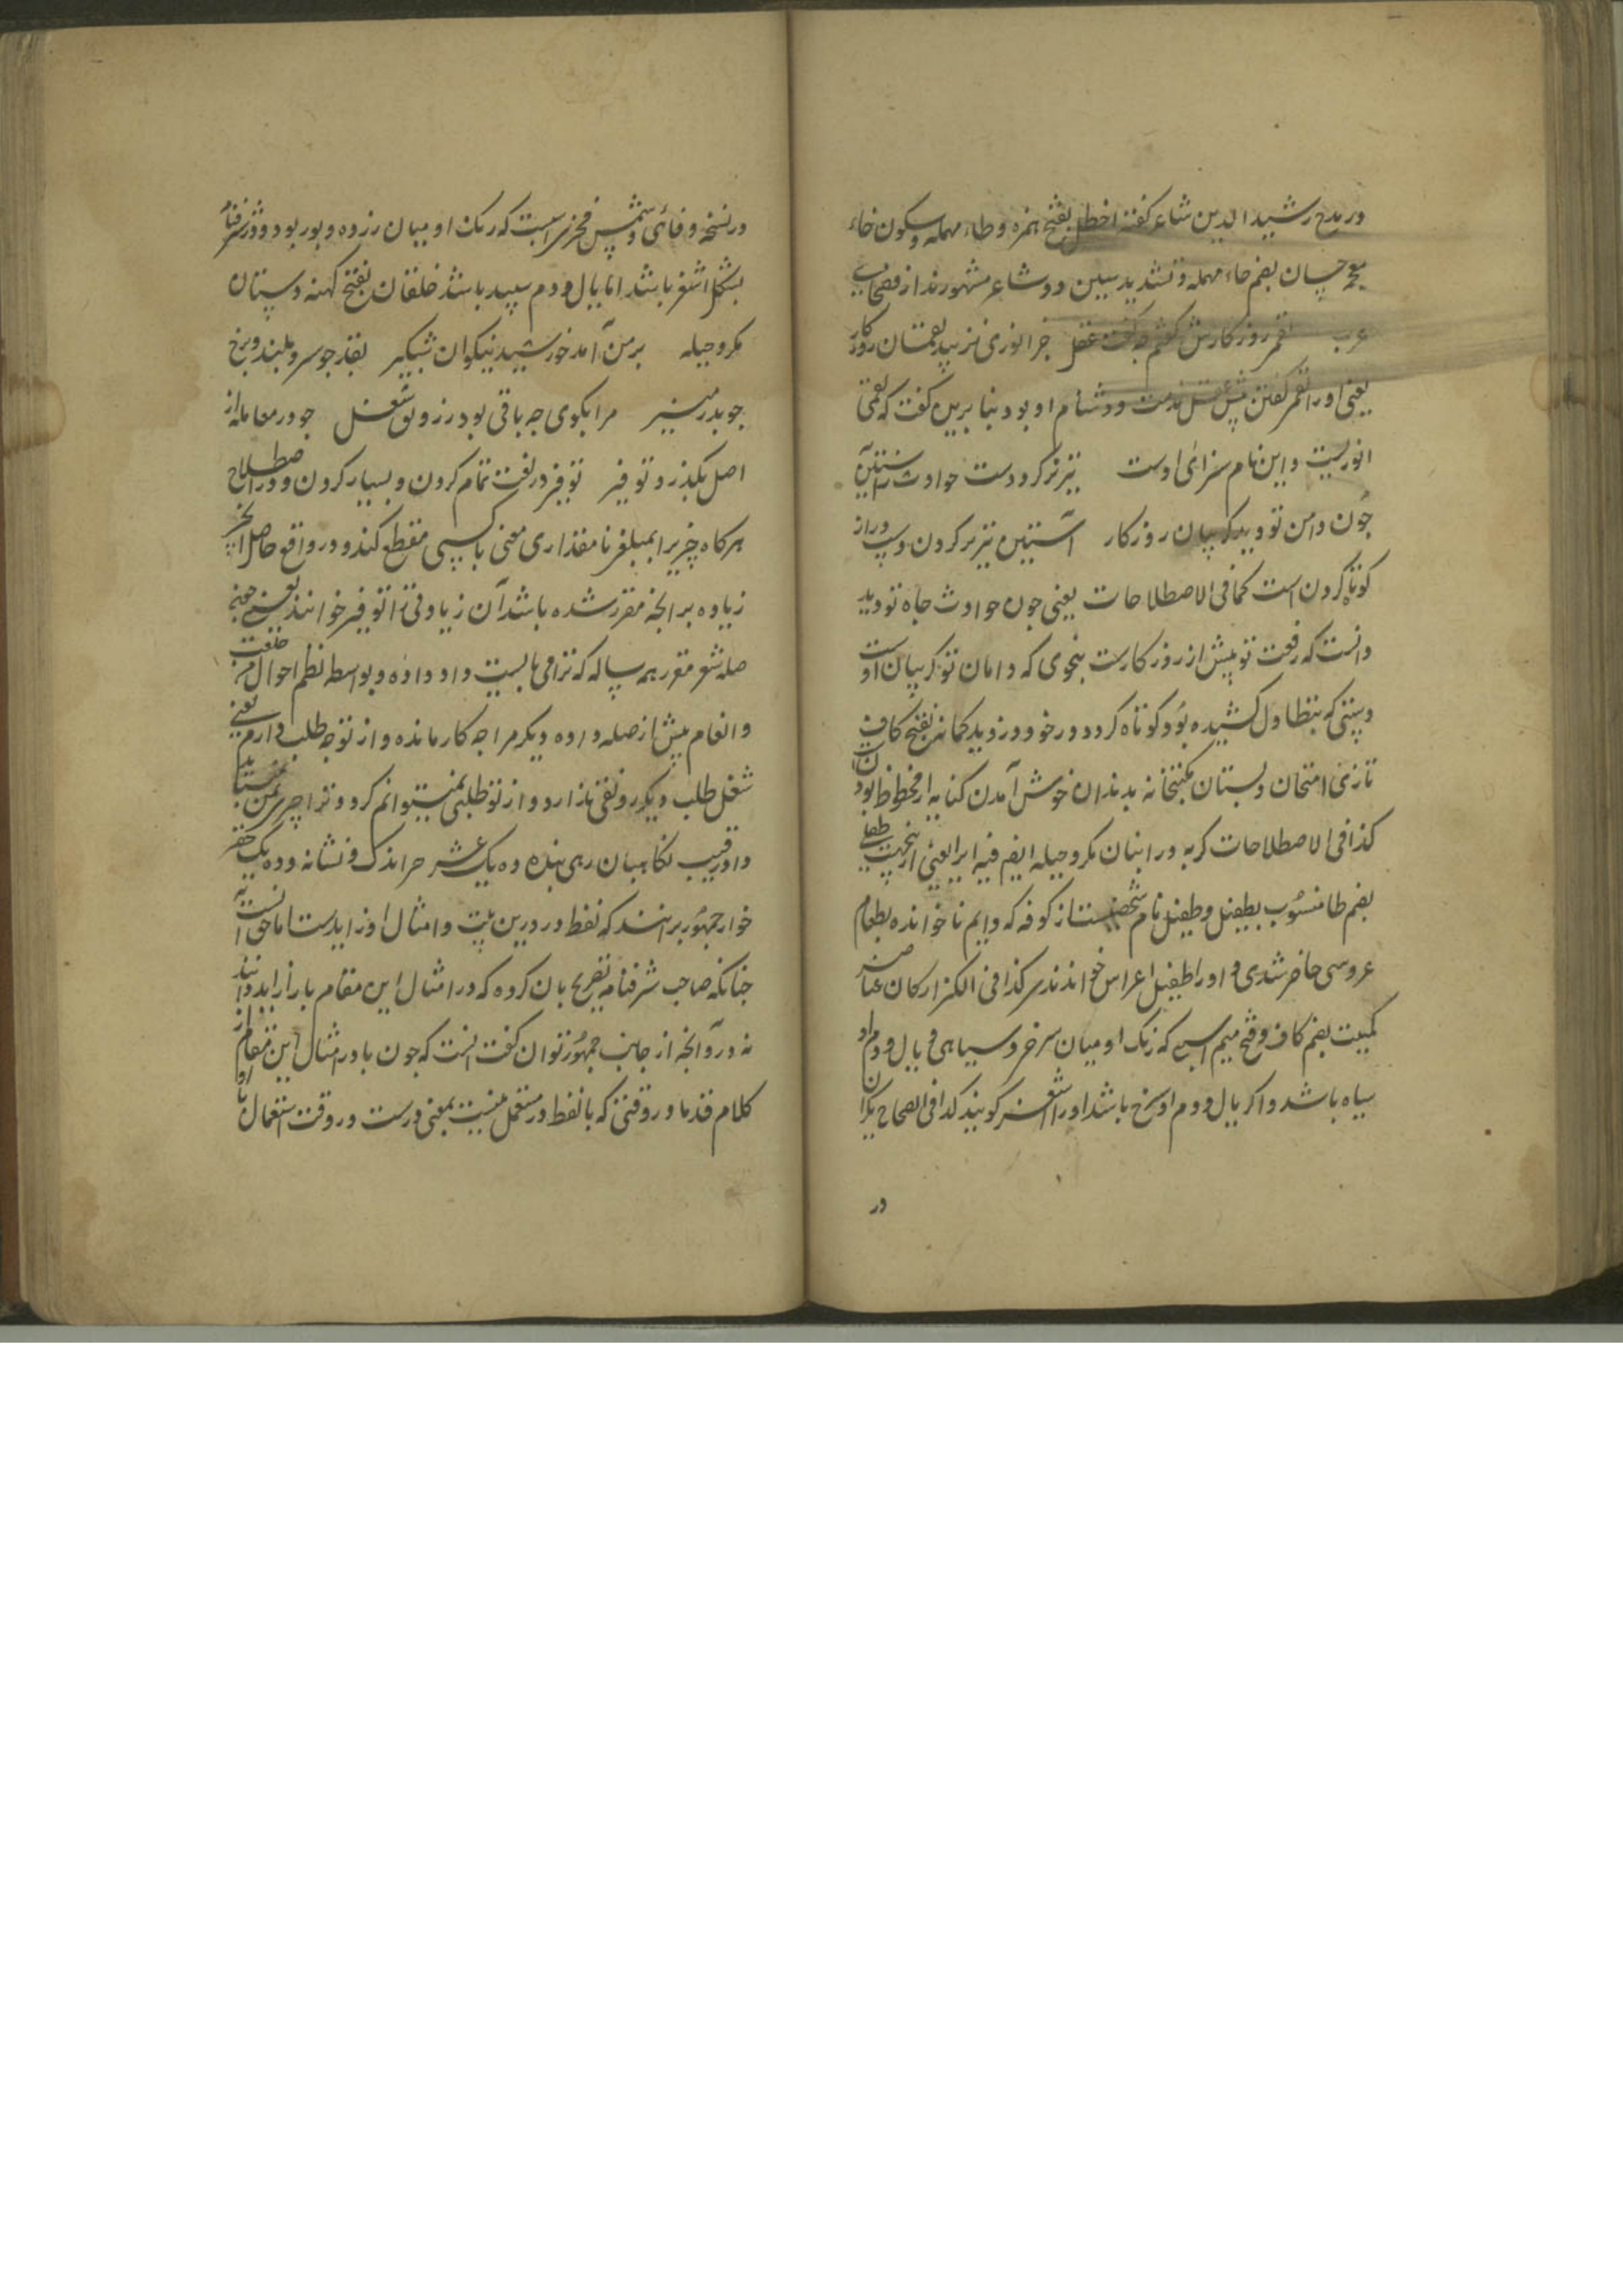 در مدح رشید الدین شاعر کفته اخطل بفتح همزه و طاء مهمله و سکون خاء
معجمه حسان بضم حاء مهمله و تشدید سین دو شاعر مشهورند از فصحای
عرب روزکارش کفتم عقل جز انوری نزیبد لقمان روزکار
یعنی او را کفتن پیش عقل مذمت و دشنام او بود بنا برین کفت که لقمان
انوریست و این نام سزای اوست تیریز کرد دست حوادث آستین
چون دامن تو دید کریبان روزکار آستین تیریز کردن و دراز
کوتاه کردن است کما فی الاصطلاحات یعنی چون حوادث جاه تو دید
دانست که رفعت تو پیش از روزکارست بنحوی که دامان تو کریبان اوست
دستی که بتطاول کشیده بود کوتاه کرد و در خود دزدید کمانه بفتح کاف
تازی امتحان دبستان مکتبخانه بدندان خوش آمدن کنایه از محظوظ بودن
کذا فی الاصطلاحات کربه در انبان مکر و حیله ایضم فیه ایرا یعنی ازینجهت طفیلی
بضم طا منسوب بطفیل و طفیل نام شخصیست از کوفه که دایم ناخوانده بطعام
عروسی حاضر شدی و او را طفیل اعراس خواندند کذا فی الکنز ارکان عناصر
کمیت بضم کاف و فتح میم اسبی که رنک او میان سرخ و سیاهی و یال و دم او
سیاه باشد و اکر یال و دم او سرخ باشد او را اشقر کویند کذا فی الصحاح یکران
در
در نسخه وفائی و شمس فخری اسبیست که رنک او میان زرده و بور بود و در شرفنامه
بشکل اشقر باشد اما یال و دم سپید باشد خلقان بفتح کهنه دستان
مکر و حیله بر من آمد خورشید نیکوان شبکیر بقد چو سرو بلند و برخ
چو بدر منیر مرا بکوی چه باقی بود ز رونق شغل چو در معامله از
اصل بکذرد توفیر توفیر در لغت تمام کردن و بسیار کردن و در اصطلاح
هرکاه چیزیرا بمبلغی تا مقداری معین با کسی مقطع کنند و در واقع حاصل آنچیز
زیاده بر آنچه مقرر شده باشد آن زیادتی را توفیر خوانند یعنی
صله شعر مقرر همه ساله که ترا می بایست داد داده و بواسطه نظم احوال من خلعت
و انعام بیش از صله داده دیکر مرا چه کار مانده و از تو چه طلب دارم یعنی
شغل طلب دیکر رونقی ندارد و از تو طلبی نمیتوانم کرد و ترا چیزی بمن نمیباید
داد رقیب نکاهبان رهی بنده ده یک عشر حر اندک و نشانه و ده یک حقیر
خوار جمهور برانند که لفظ در درین بیت و امثال او زایدست اما حق آنست
چنانکه صاحب شرفنامه تصریح بان کرده که در امثال این مقام با را زاید دانند
نه در و آنچه از جانب جمهور توان کفت انست که چون با در امثال این مقام از
کلام قدما در وقتی که با لفظ در مستعمل نیست بمعنی درست در وقت استعمال او با